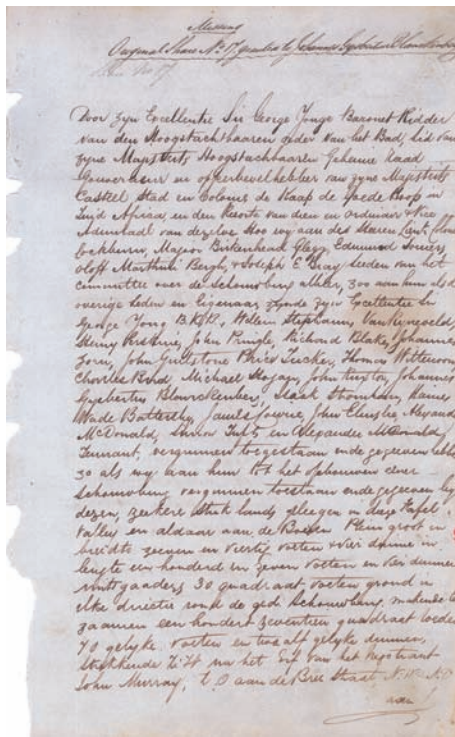 Original Share No 17, granted to Johannes Gysbertus Blanckenberg
Door zyn Excellentie Sir George Yonge Baronet Ridder
van den Hoogstachtbaaren order van het Bad, lid van
zyne Majesteits Hoogstachtbaaren Geheime Raad
Gouverneur en opperbevelhebber van zyne Majesteits
Casteel Stad en Colonie de Kaap de Goede Hoop in
Zuid Africa, en den Resorte van dien en ordinair & Vice
Admiraal van dezelve Zoo wy aan des Heeren Lieut. Colonel
Cockburn, Major Birkenhead Glegg, Edmund Somers,
Oloff Marthini Bergh, & Joseph E Bray Leeden van het
Committee over de Schouwburg alhier, zoo aan hun als de
overige leden en Eigenaars zynde zyn Excellentie Sir
George Yong B.K.B., Willem Stephanus Van Ryneveld,
Henry Erskine, John Pringle, Richard Blake, Johannes
Zorn, John Gulstone Price Tucker, Thomas Wittenoom
Charles Bird, Michael Hogan, John Murray, Johannes
Gysbertus Blanckenberg, Isaac Strombom, Hames
Wade Batterley, James Fowrie, John Elmslie, Alexander
McDonald, en Alexander McDonald,
Tennant, vergunnen toegestaan ende gegeeven hebben
zo als wy aan hun tot het opbouwen eener
Schouwburg vergunnen toestaan ende gegeeven by
dezen, zeekere stuk lands geleegen in deze Tafel
Valley en aldaar aan de Boeren Plein groot in
breidte zeeven en veertig voeten & vier duime in
lengte een honderd en zeven voeten en vier duimen
mitsgaaders 30 quadraat voeten grond in
elke directie rond de ged. Schouwburg, makende te
zaamen een honderd zeventien quadraat roeden
70 gelyke voeten en twaalf gelyke duimen,
Strekkende Z:W na het Erf van het
John Murray, t. O aan de Bree Straat N.W.
aan